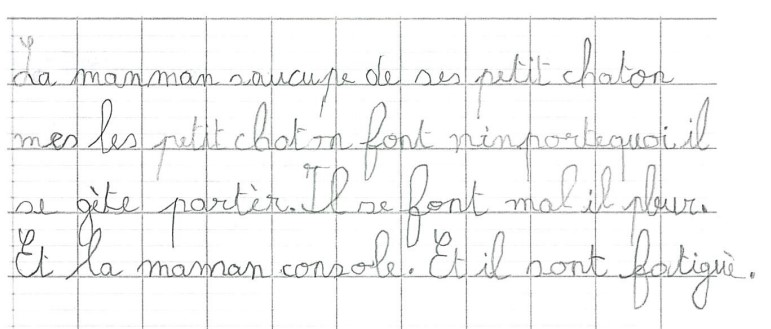 La manman saucupe de ses petit chaton
mes les petit chaton font ninportequoi il
se gète partèr. Il se font mal il pleur.
Et la maman console. Et il sont fatiguè.